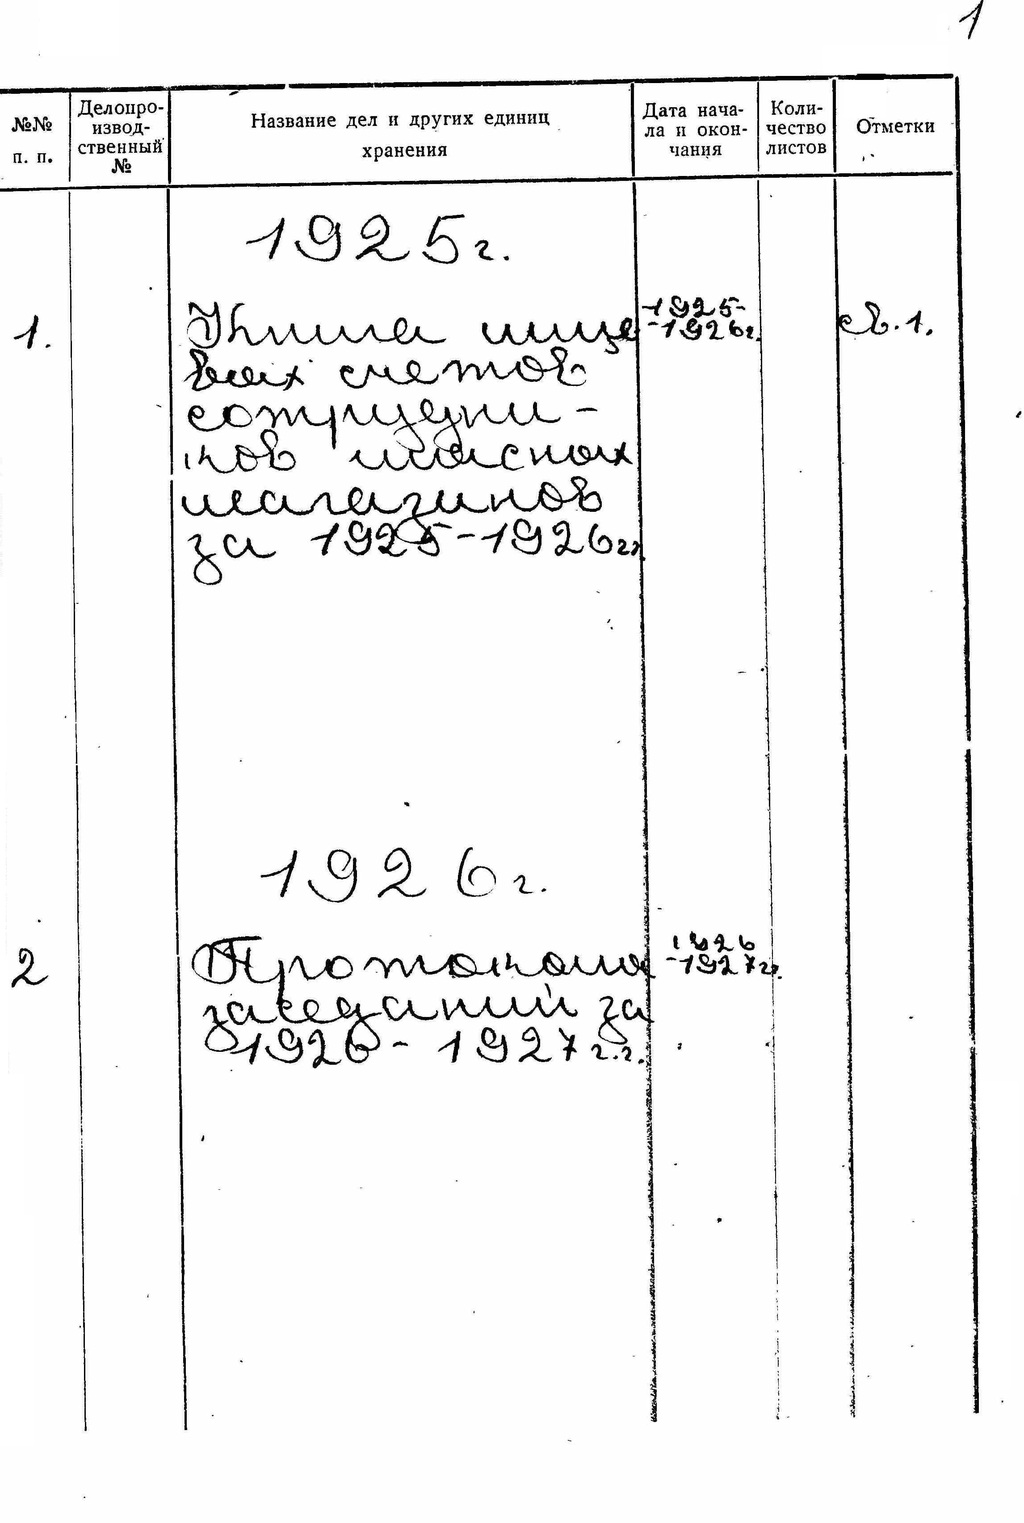 1
№№ п. п.
Делопро-
извод-
ственный
№
Название дел и других единиц
хранения
Дата нача-
ла и окон-
чания
Коли-
чество
листов
Отметки
1925г.
1. Книга лице
вых счетов
сотрудни-
ков мясных
магазинов
за 1925-1926гг
1925-
-1926г.
св. 1.
1926г.
2 Протоколы
заседаний за
1926 - 1927 г.г.
1926
-1927г.